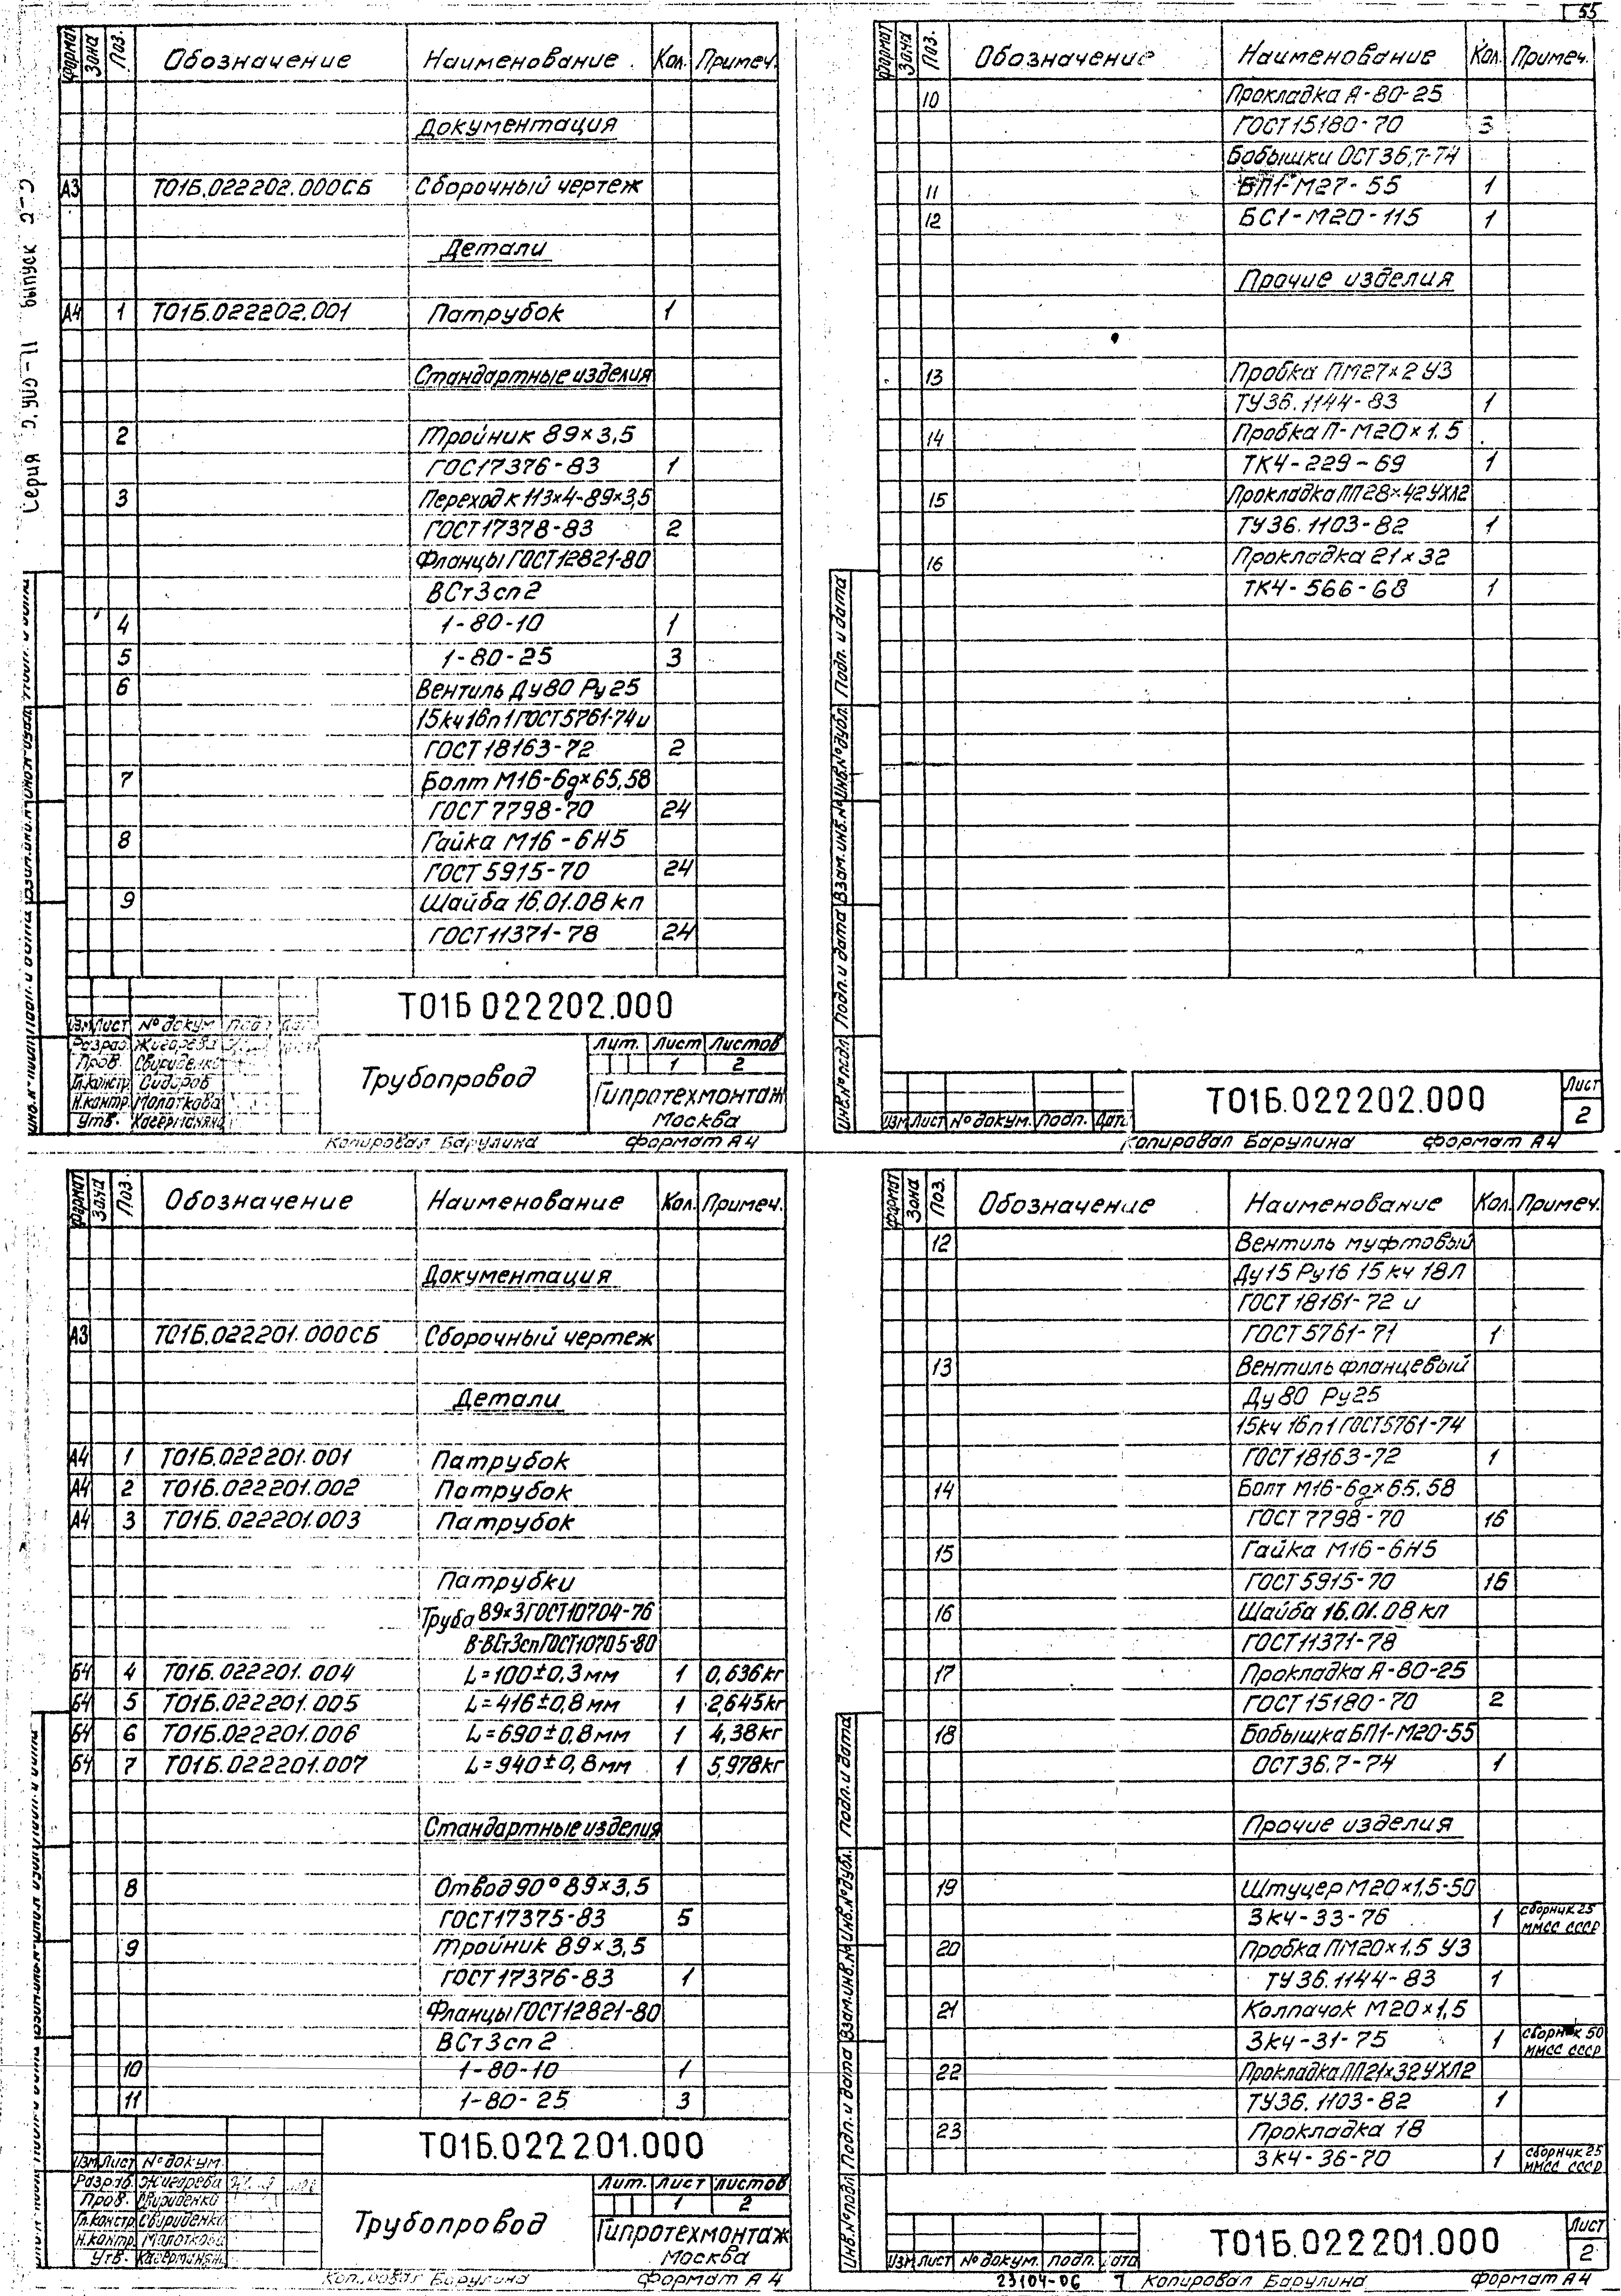 55
Формат Зона Поз. Обозначение Наименование Кол. Примеч.
Документация
А3 Т01Б.022202.000СБ Сборочный чертеж
Детали
А4 1 Т01Б.022202.001 Патрубок 1
Стандартные изделия
2 Тройник 89×3,5
ГОС17376-83 1
3 Переход к 113×4-89×3,5
ГОСТ17378-83 2
Фланцы ГОСТ12821-80
ВСт3сп2
4 1-80-10 1
5 1-80-25 3
6 Вентиль Ду80 Ру25
15кч16п1ГОСТ5761-74и
ГОСТ18163-72 2
7 Болт М16-6g×65,58
ГОСТ 7798-70 24
8 Гайка М16-6Н5
ГОСТ 5915-70 24
9 Шайба 16.01.08кп
ГОСТ11371-78 24
Т01Б 022202.000
Изм Лист № докум
Разраб Жигарева
Пров. Свириденко
Гл.констр Сидоров
Н.контр. Молоткова
Утв.
Трубопровод
Лит. Лист Листов
1 2
Гипротехмонтаж
Москва
Копировал Барулина Формат А4
Серия выпуск
Формат Зона Поз. Обозначение Наименование Кол. Примеч.
10 Прокладка А-80-25
ГОСТ15180-70 3
Бобышки ОСТ36,7-74
11 БП1-М27-55 1
12 БС1-М20-115 1
Прочие изделия
13 Пробка ПМ27×2 У3
ТУ36.1144-83 1
14 Пробка П-М20×1.5
ТК4-229-69 1
15 Прокладка ПП28×42УХЛ2
ТУ36.1103-82 1
16 Прокладка 21×32
ТК4-566-68 1
Инв.№подл Подп.и дата Взам.инв.№ Инв.№дубл. Подп. и дата
Изм Лист № докум. Подп. Дата
Т01Б.022202.000
Лист
2
Копировал Барулина Формат А4
Формат Зона Поз. Обозначение Наименование Кол. Примеч.
Документация
А3 Т01Б.022201.000СБ Сборочный чертеж
Детали
А4 1 Т01Б.022201.001 Патрубок
А4 2 Т01Б.022201.002 Патрубок
А4 3 Т01Б.022201.003 Патрубок
Патрубки
Труба 89×3ГОСТ10704-76
В-ВСт3спГОСТ10705-80
Б4 4 Т01Б.022201.004 L=100±0,3мм 1 0,636кг
Б4 5 Т01Б.022201.005 L=416±0,8мм 1 2,645кг
Б4 6 Т01Б.022201.006 L=690±0,8мм 1 4,38кг
Б4 7 Т01Б.022201.007 L=940±0,8мм 1 5,978кг
Стандартные изделия
8 Отвод90°89×3,5
ГОСТ17375-83 5
9 Тройник 89×3,5
ГОСТ17376-83 1
Фланцы ГОСТ12821-80
ВСт3сп2
10 1-80-10 1
11 1-80-25 3
Т01Б.022201.000
Изм Лист № докум.
Разраб. Жигарева
Пров. Свириденко
Гл.констр Свириденко
Н.контр. Молоткова
Утв.
Трубопровод
Лит. Лист Листов
1 2
Гипротехмонтаж
Москва
Копировал Барулина Формат А4
Формат Зона Поз. Обозначение Наименование Кол. Примеч.
12 Вентиль муфтовый
Ду15 Ру16 15кч 18п
ГОСТ 18161-72 и
ГОСТ5761-71 1
13 Вентиль фланцевый
Ду80 Ру25
15кч 16п1ГОСТ5761-74
ГОСТ18163-72 1
14 Болт М16-6g×65.58
ГОСТ 7798-70 16
15 Гайка М16-6Н5
ГОСТ5915-70 16
16 Шайба 16.01.08кп
ГОСТ11371-78
17 Прокладка А-80-25
ГОСТ15180-70 2
18 Бобышка БП1-М20-55
ОСТ36.7-74 1
Прочие изделия
19 Штуцер М20×1,5-50
ЗК4-33-76 1 сборник 25 ММСС СССР
20 Пробка ПМ20×1,5 У3
ТУ36.1144-83 1
21 Колпачок М20×1,5
ЗК4-31-75 1 сборник 50 ММСС СССР
22 Прокладка ПП21×32УХЛ2
ТУ36.1103-82 1
23 Прокладка 18
ЗК4-36-70 1 сборник 25 ММСС СССР
Инв.№подл Подп.и дата Взам.инв.№ Инв.№дубл. Подп.и дата
Изм Лист № докум. Подп. Дата
Т01Б.022201.000
Лист
2
23104-06 7 Копировал Барулина Формат А4